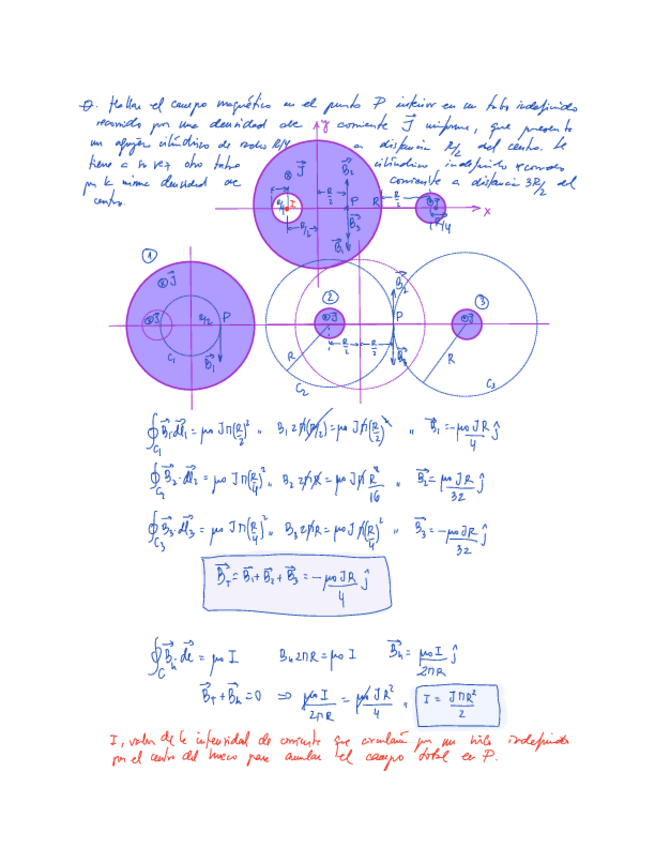 Q. Hallar el campo magnético en el punto P interior en un tubo indefinido
recorrido por una densidad de corriente J⃗ uniforme, que presenta
un agujero cilíndrico de radio R/4 a distancia R/2 del centro. Se
tiene a su vez otro tubo cilíndrico indefinido recorrido
por la misma densidad de corriente a distancia 3R/2 del
centro.
y
⊗ J⃗ R/2 B⃗₂
R/4 I P R R/2 ⊗J⃗ x
R/2 B⃗₃ R/4
B⃗₁
① ⊗J⃗ ⊗J⃗ R/2 P C₁ B⃗₁
② ⊗J⃗ R/2 R/2 R C₂ B⃗₂ P B⃗₃
③ ⊗J⃗ R C₃
∮C₁ B⃗₁·dl⃗₁ = μ₀ Jπ(R/2)² ,, B₁ 2π(R/2) = μ₀ Jπ(R/2)² ,, B⃗₁ = -μ₀ JR/4 ĵ
∮C₂ B⃗₂·dl⃗₂ = μ₀ Jπ(R/4)² ,, B₂ 2πR = μ₀ Jπ R²/16 ,, B⃗₂ = μ₀ JR/32 ĵ
∮C₃ B⃗₃·dl⃗₃ = μ₀ Jπ(R/4)² ,, B₃ 2πR = μ₀ Jπ(R/4)² ,, B⃗₃ = -μ₀ JR/32 ĵ
B⃗T = B⃗₁ + B⃗₂ + B⃗₃ = -μ₀ JR/4 ĵ
∮C B⃗h·dl⃗ = μ₀ I Bh 2πR = μ₀ I B⃗h = μ₀ I/2πR ĵ
B⃗T + B⃗h = 0 ⇒ μ₀ I/2πR = μ₀ JR²/4 ,, I = JπR²/2
I, valor de la intensidad de corriente que circularía por un hilo indefinido
por el centro del hueco para anular el campo total en P.